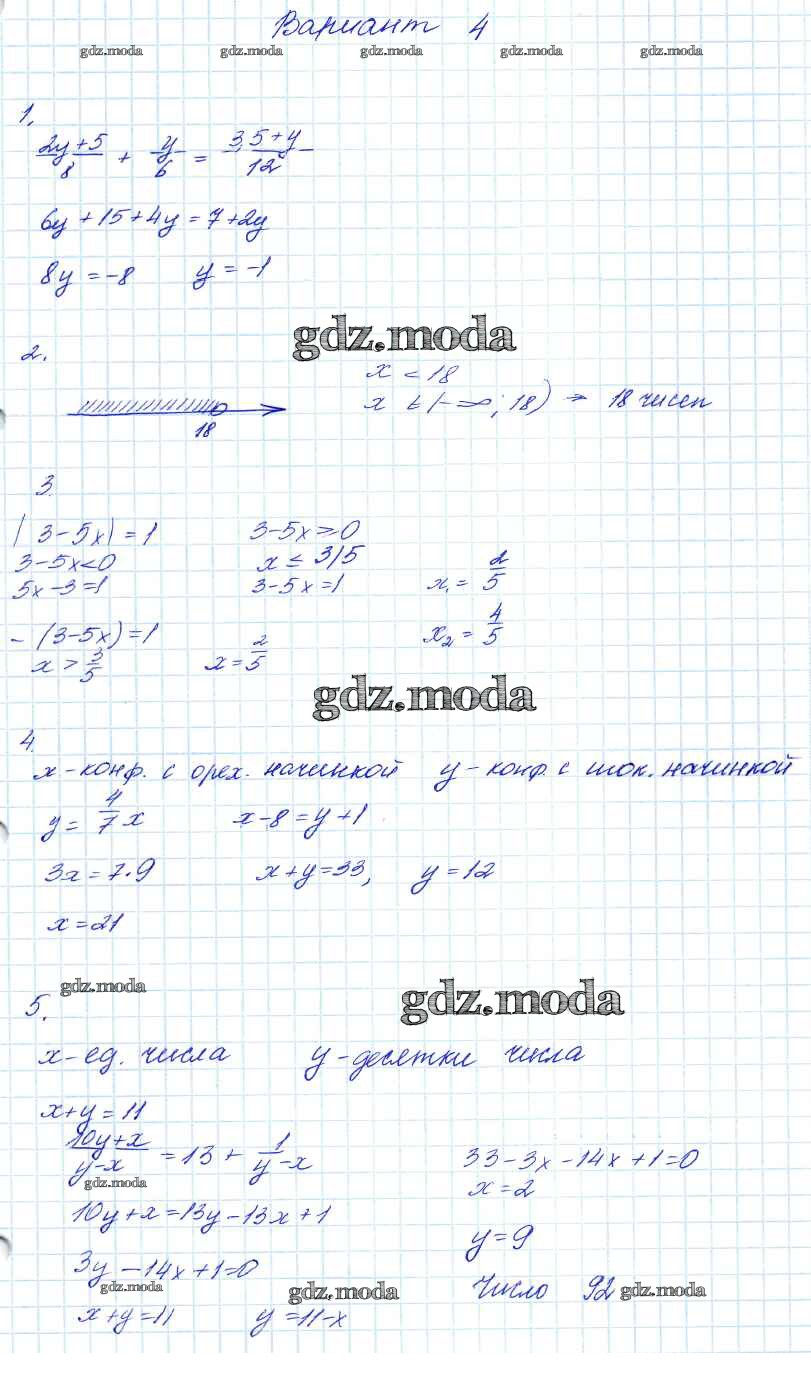 Вариант 4
gdz.moda gdz.moda gdz.moda gdz.moda gdz.moda
1.
(2y+5)/8 + y/6 = (3,5+y)/12
6y + 15 + 4y = 7 + 2y
8y = -8 y = -1
gdz.moda
2.
x < 18
x ∈ (-∞; 18) → 18 чисел
18
3.
|3-5x| = 1 3-5x ≥ 0
3-5x<0 x ≤ 3/5
5x-3=1 3-5x=1 x₁ = 2/5
-(3-5x)=1 x₂ = 4/5
x > 3/5 x = 2/5
gdz.moda
4.
x - конф. с орех. начинкой y - конф. с шок. начинкой
y = 4/7 x x-8 = y+1
3x = 7·9 x+y=33, y=12
x = 21
gdz.moda gdz.moda
5.
x - ед. числа y - десятки числа
x+y = 11
(10y+x)/(y-x) = 13 + 1/(y-x) 33-3x-14x+1=0
gdz.moda x = 2
10y+x = 13y-13x+1
y = 9
3y-14x+1=0
gdz.moda gdz.moda Число 92 gdz.moda
x+y=11 y=11-x